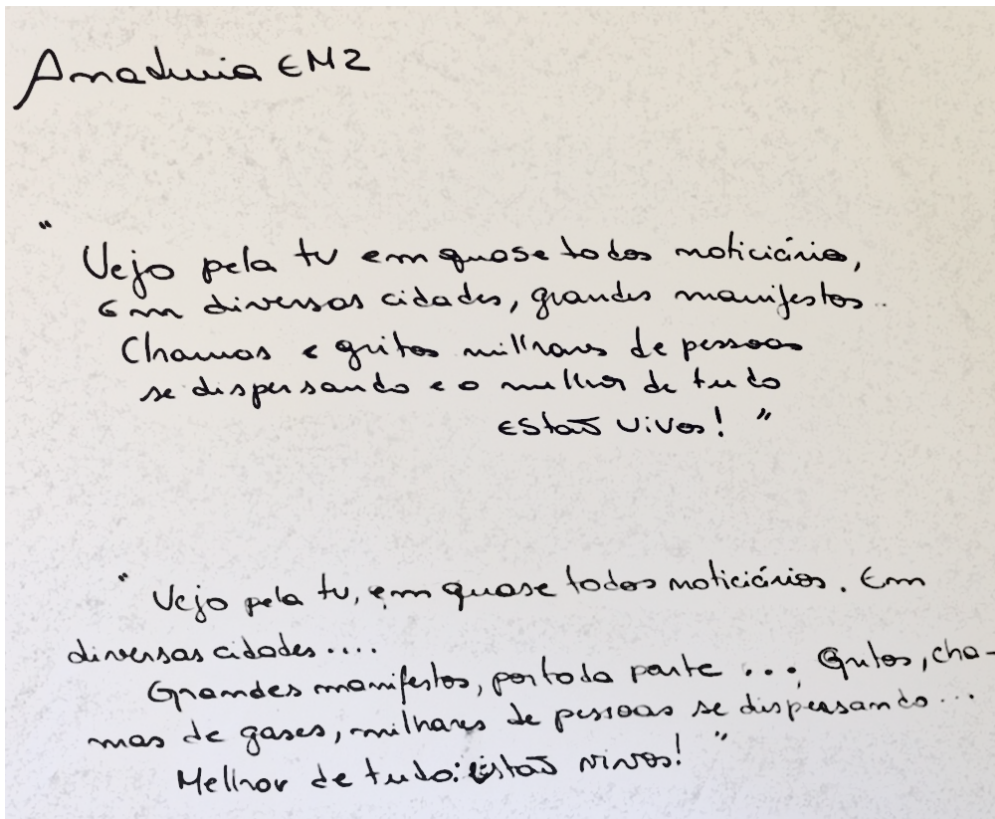 Amaduria EM2
"
Vejo pela tv em quase todos noticiário,
Em diversas cidades, grandes manifestos..
Chamas e gritos milhares de pessoas
se dispersando e o melhor de tudo
EStaõ ViVos! "
" Vejo pela tv, em quase todos noticiários. Em
diversas cidades....
Grandes manifestos, por toda parte ... Gritos, cha-
mas de gases, milhares de pessoas se dispersando...
Melhor de tudo: Estaõ vivos! "